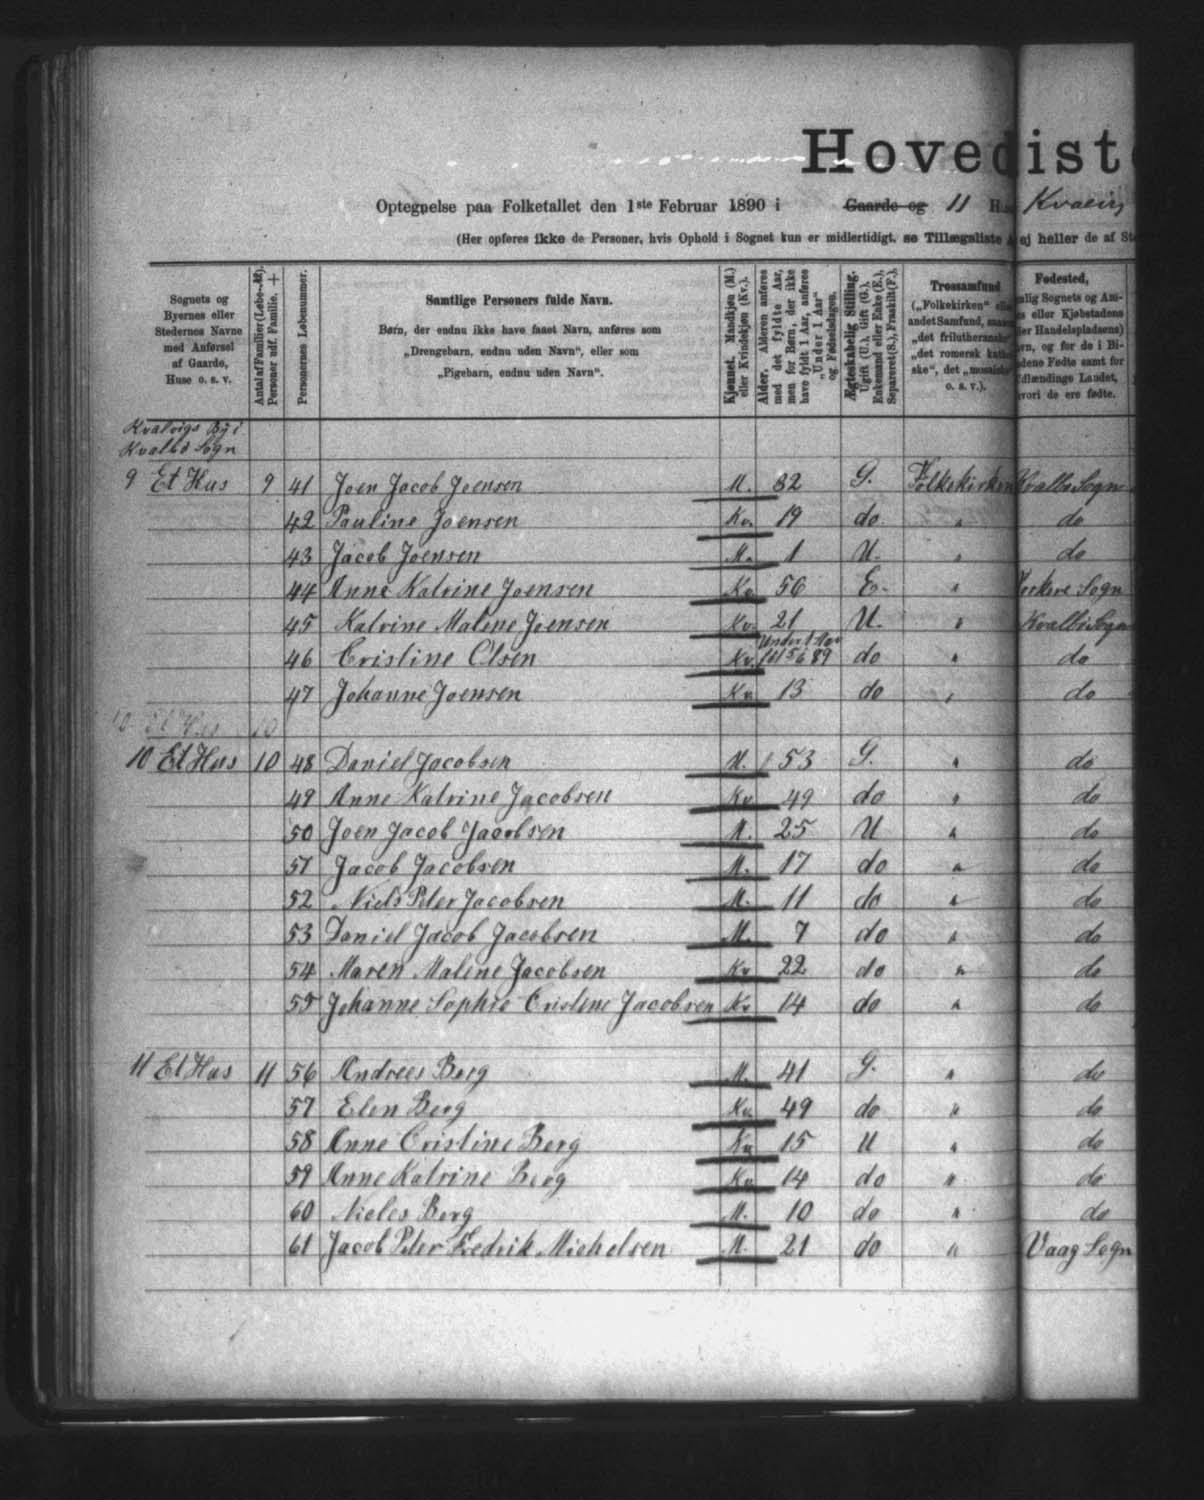 Hovediste
Optegnelse paa Folketallet den 1ste Februar 1890 i Gaarde og 11 Kvalvig
(Her opføres ikke de Personer, hvis Ophold i Sognet kun er midlertidigt, se Tillægsliste ej heller de af
Sognets og Byernes eller Stedernes Navne med Anførsel af Gaarde, Huse o. s. v.
Antal af Familier (Løbe-№). Personer udf. Familie. +
Personernes Løbenummer.
Samtlige Personers fulde Navn.
Børn, der endnu ikke have faaet Navn, anføres som
„Drengebarn, endnu uden Navn", eller som
„Pigebarn, endnu uden Navn".
Kjønnet. Mandkjøn (M.) eller Kvindekjøn (Kv.).
Alder. Alderen anføres med det fyldte Aar, men for Børn, der ikke have fyldt 1 Aar, anføres „Under 1 Aar" og Fødselsdagen.
Ægteskabelig Stilling. Ugift (U.), Gift (G.), Enkemand eller Enke (E.), Separeret (S.), Fraskilt (F.).
Trossamfund
(„Folkekirken"
andet Samfund,
„det frilutheranske
„det romersk
ske", det „mosaiske
o. s. v.).
Fødested,
Sognets og Am-
eller Kjøbstadens
Handelspladsens)
og for de i Bi-
Fødte samt for
Udlændinge Landet,
hvori de ere fødte.
Kvalvigs By i
Kvalbø Sogn
9 Et Hus 9 41 Joen Jacob Joensen M. 32 G. Folkekirken Kvalbø Sogn
42 Pauline Joensen Kv. 19 do. " do
43 Jacob Joensen M. 1 U. " do
44 Anne Katrine Joensen Kv 56 E. " Sogn
45 Katrine Malene Joensen Kv. 21 U. " Kvalbø Sogn
46 Cristine Olsen Kv Under 1 Aar do " do
47 Johanne Joensen Kv 13 do " do
10 Et Hus 10
10 Et Hus 10 48 Daniel Jacobsen M. 53 G. " do
49 Anne Katrine Jacobsen Kv 49 do " do
50 Joen Jacob Jacobsen M. 25 U " do
51 Jacob Jacobsen M. 17 do " do
52 Niels Peter Jacobsen M. 11 do " do
53 Daniel Jacob Jacobsen M. 7 do " do
54 Maren Malene Jacobsen Kv 22 do " do
55 Johanne Sophie Cristene Jacobsen Kv 14 do " do
11 Et Hus 11 56 Andrees Berg M. 41 G. " do
57 Elen Berg Kv 49 do " do
58 Anne Cristine Berg Kv 15 U " do
59 Anne Katrine Berg Kv 14 do " do
60 Nieles Berg M. 10 do " do
61 Jacob Peter Fredrik Michelsen M. 21 do " Vaag Sogn